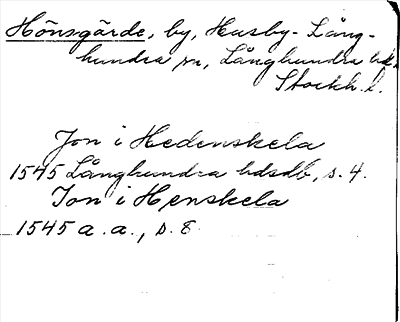 Hönsgärde, by, Husby-Lång-
hundra sn, Långhundra hd.
Stockh. l.
Jon i Hedenskela
1545 Långhundra hdsdb, s. 4.
Jon i Henskela
1545 a. a., s. 8